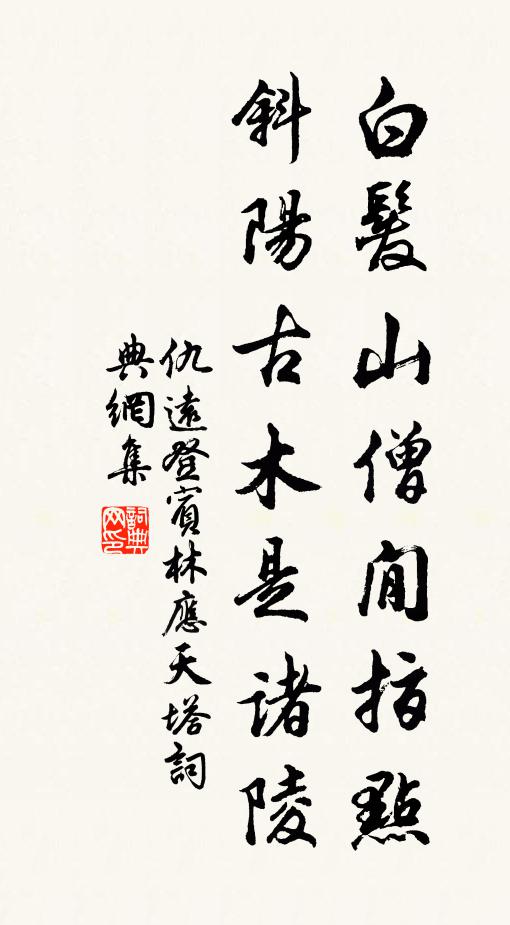 白髮山僧閒指點
斜陽古木是諸陵
仇遠登賓林應天塔詞
典網集
詞典
网印